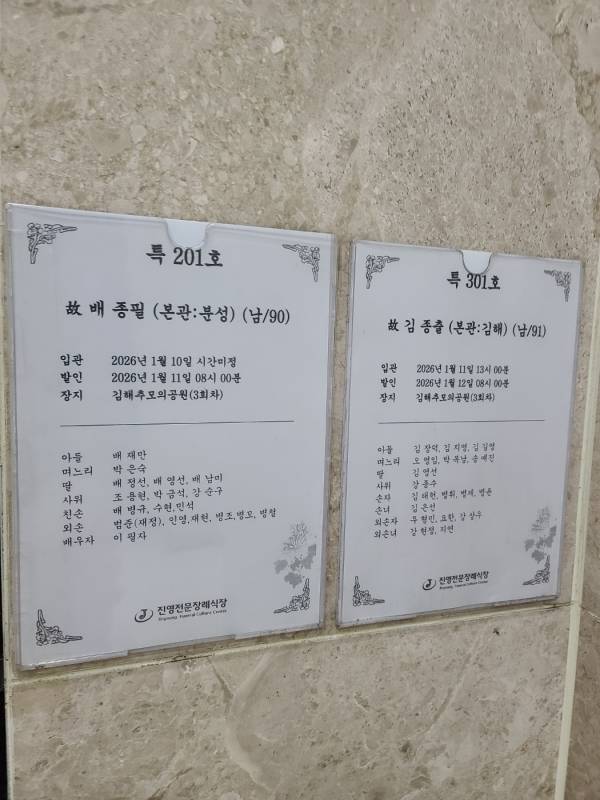 특 201호
故 배 종필 (본관:분성) (남/90)
입관 2026년 1월 10일 시간미정
발인 2026년 1월 11일 08시 00분
장지 김해추모의공원(3회차)
아들 배 재만
며느리 박 은숙
딸 배 정선, 배 영선, 배 남미
사위 조 용현, 박 금석, 강 순구
친손 배 병규, 수현, 민석
외손 범준(재정), 인영, 재현, 병조, 병모, 병철
배우자 이 필자
진영전문장례식장
Jinyoung Funeral Culture Center
특 301호
故 김 종출 (본관:김해) (남/91)
입관 2026년 1월 11일 13시 00분
발인 2026년 1월 12일 08시 00분
장지 김해추모의공원(3회차)
아들 김 창덕, 김 지영, 김 길영
며느리 오 영임, 박 복남, 송 예진
딸 김 영선
사위 강 종수
손자 김 태헌, 병휘, 병제, 병운
손녀 김 은선
외손자 형민, 요한, 강 상우
외손녀 강 현정, 지연
진영전문장례식장
Jinyoung Funeral Culture Center